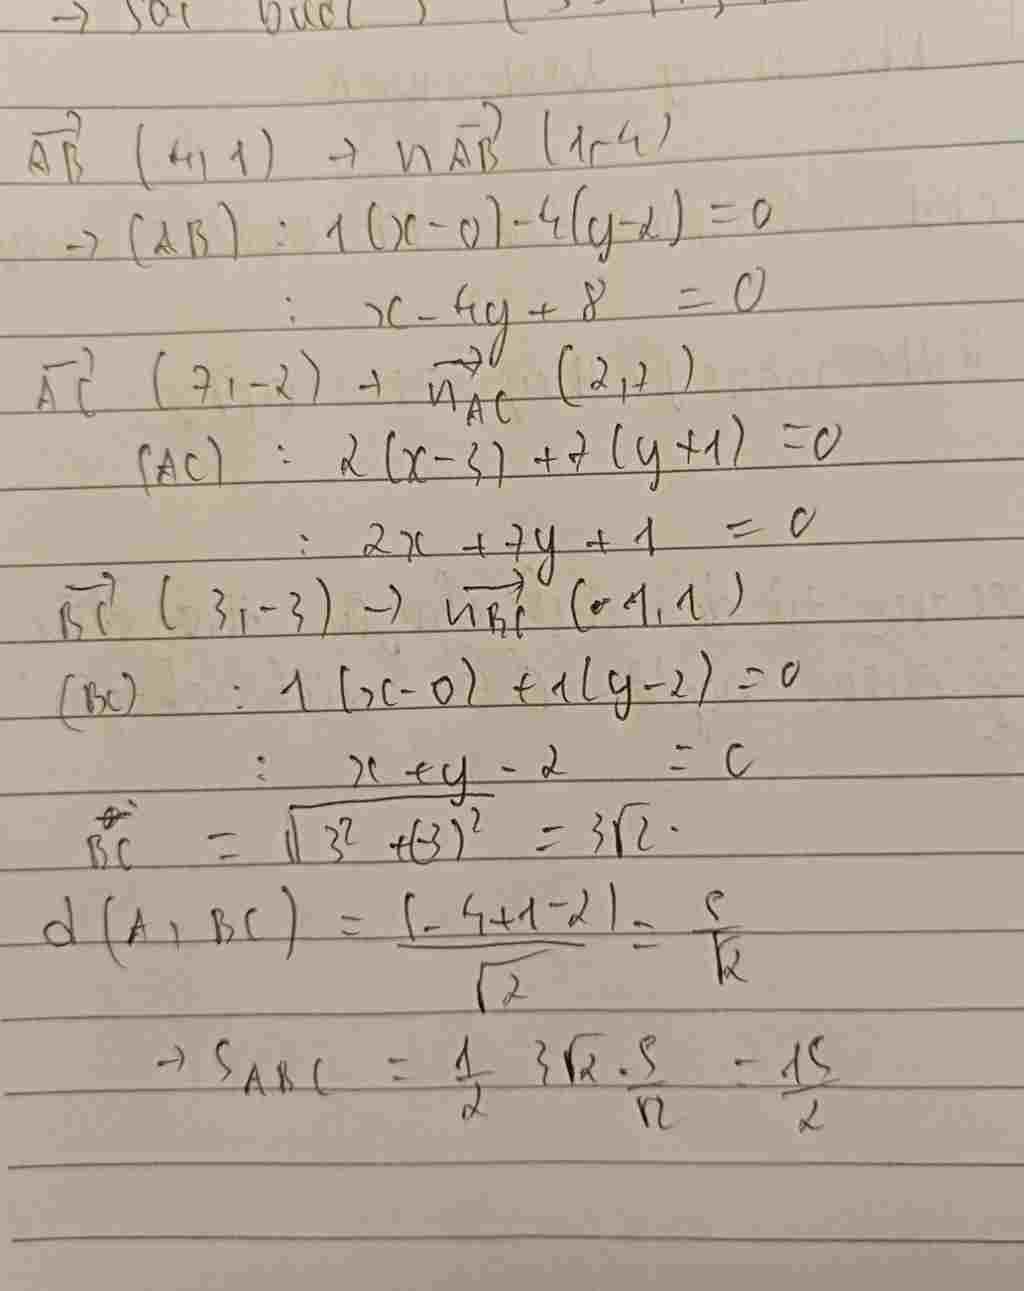 AB (4, 1) → nAB (1, -4)
→ (AB) : 1(x-0)-4(y-2) = 0
: x - 4y + 8 = 0
AC (7, -2) → nAC (2, 7)
(AC) : 2(x-3) + 7(y+1) = 0
: 2x + 7y + 1 = 0
BC (3, -3) → nBC (1, 1)
(BC) : 1(x-0) + 1(y-2) = 0
: x + y - 2 = 0
BC = √(3² + (-3)²) = 3√2.
d(A, BC) = |-4+1-2|/√2 = 5/√2
→ SABC = 1/2 3√2 . 5/√2 = 15/2